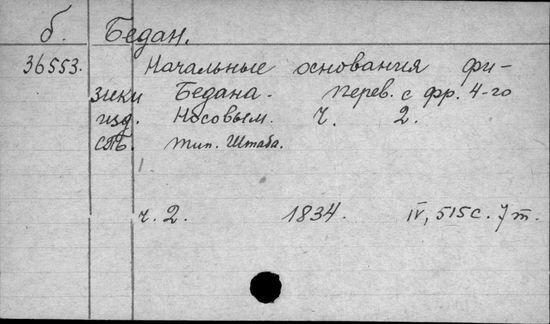 б. Бедан.
36553. Начальные основания фи-
зики Бедана. Перев. с фр. 4-го
изд. Носовым. Ч. 2.
СПБ. Тип. Штаба.
ч. 2. 1834. IV, 515 с. 7 т.